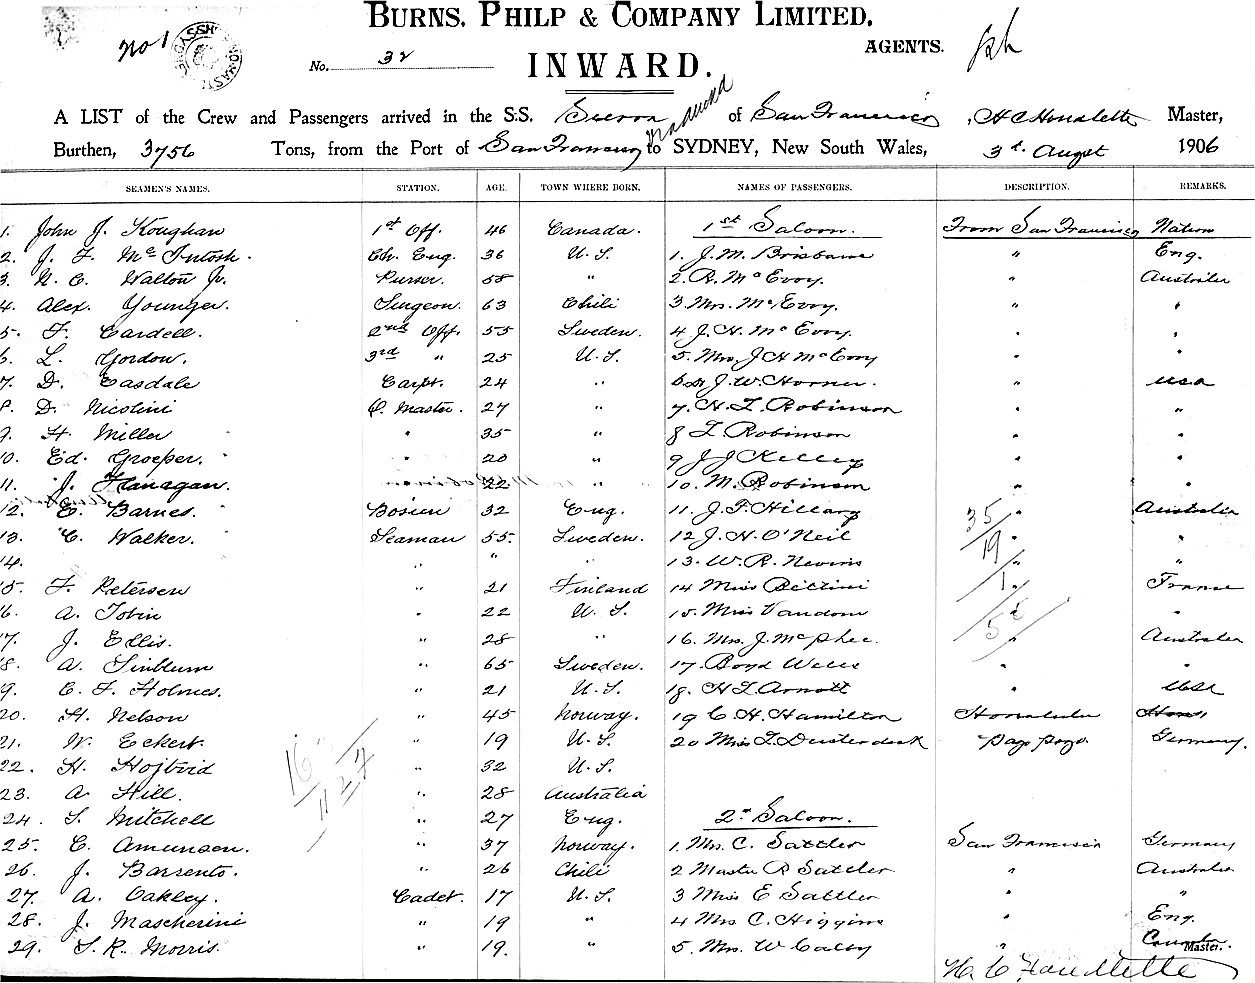 BURNS, PHILP & COMPANY LIMITED,
AGENTS.
No 1
No. 32
INWARD.
A LIST of the Crew and Passengers arrived in the S.S. Sierra of San Francisco, H C Houdlette Master,
Burthen, 3756 Tons, from the Port of San Francisco to SYDNEY, New South Wales, 3d. August 1906
SEAMEN'S NAMES. STATION. AGE. TOWN WHERE BORN. NAMES OF PASSENGERS. DESCRIPTION. REMARKS.
1. John J. Koughan 1st Off. 46 Canada. 1st Saloon. From San Francisco Nation
2. J. F. McIntosh. Ch. Eng. 36 U. S. 1. J. M. Brisbane " Eng.
3. N. C. Walton Jr. Purser. 58 " 2. R. McEvoy. " Australia
4. Alex. Younger. Surgeon. 63 Chili 3. Mrs. McEvoy. " "
5. F. Cardell. 2nd Off. 55 Sweden. 4 J. H. McEvoy. " "
6. L. Gordon. 3rd " 25 U. S. 5. Mrs, J H McEvoy " "
7. D. Easdale Carpt. 24 " 6. J. W. Horner. " USA
8. D. Nicolini Q. Master. 27 " 7. H. L. Robinson " "
9. H. Miller " 35 " 8 L. Robinson " "
10. Ed. Groeper. " 20 " 9 J J Kelley " "
11. J. Flanagan. 22 " 10. M. Robinson " "
12. E. Barnes. Bosun 32 Eng. 11. J. F. Hillary " Australia
13. C. Walker. Seaman 55. Sweden. 12 J. H. O'Neil " "
14. " " 13. W. R. Nevins " "
15. F. Petersen " 21 Finland 14 Miss " France
16. A. Tobin " 22 U. S. 15. Miss Vandom "
17. J. Ellis. " 28 " 16. Mrs. J. McPhee. " Australia
18. A. " 65 Sweden. 17. Boyd Wells " "
19. C. F. Holmes. " 21 U. S. 18. H L Arnott " USA
20. H. Nelson " 45 Norway. 19 C. H. Hamilton Honolulu
21. W. Eckert. " 19 U. S. 20 Miss L. Pago Pago. Germany.
22. H. " 32 U. S.
23. A. Hill. " 28 Australia
24. S. Mitchell " 27 Eng. 2nd Saloon.
25. C. Amunsen. " 37 Norway. 1. Mrs. C. Sattler San Francisco Germany
26. J. Barsento. " 26 Chili 2 Master R Sattler " Australia
27. A. Oakley. Cadet. 17 U. S. 3 Miss E Sattler " "
28. J. Mascherini " 19 " 4 Mrs C. Higgins " Eng.
29. S. R. Morris. " 19. " 5. Mrs. W Calby " Canada
35
19
1
55
16
11
27
H. C Houdlette Master.